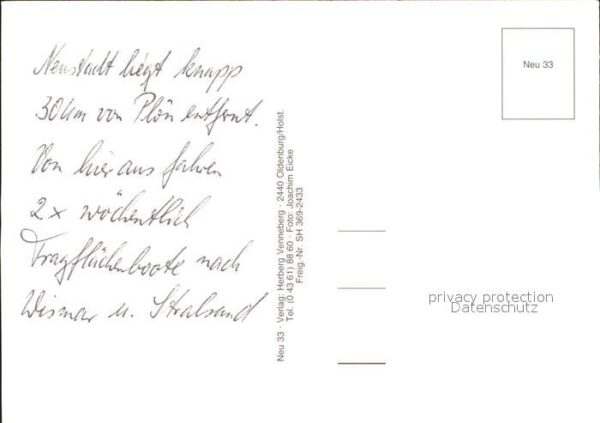 Neustadt liegt knapp
30 km von Plön entfernt.
Von hier aus fahren
2 x wöchentlich
Tragflächenboote nach
Wismar u. Stralsund
Neu 33 · Verlag: Herberg Venneberg · 2440 Oldenburg/Holst.
Tel. (0 43 61) 88 60 · Foto: Joachim Eicke
Freig.-Nr. SH 369-2433
Neu 33
privacy protection
Datenschutz